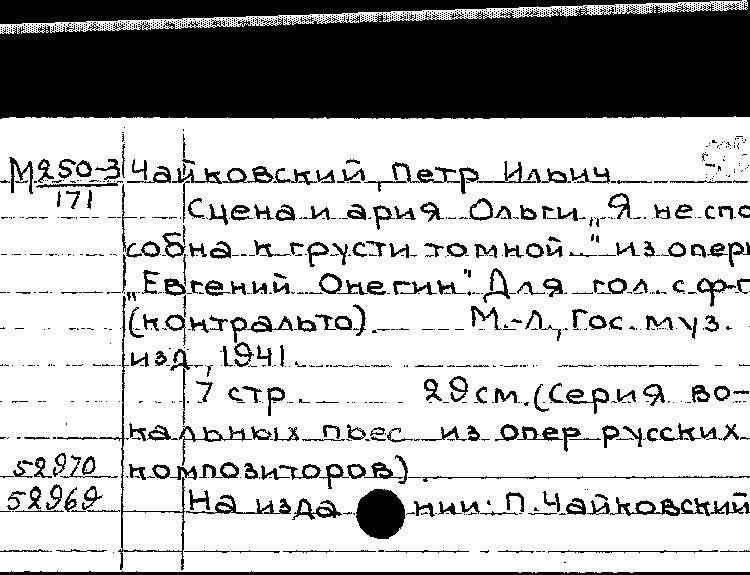 М250-3 Чайковский, Петр Ильич.
171
Сцена и ария Ольги „Я не спо
собна к грусти томной..." из опер
„Евгений Онегин". Для гол. с ф-п
(контральто). М.-Л., Гос. муз.
изд., 1941.
7 стр. 29 см. (Серия во-
кальных пьес из опер русских
52970 композиторов).
52969 На издании: П. Чайковский